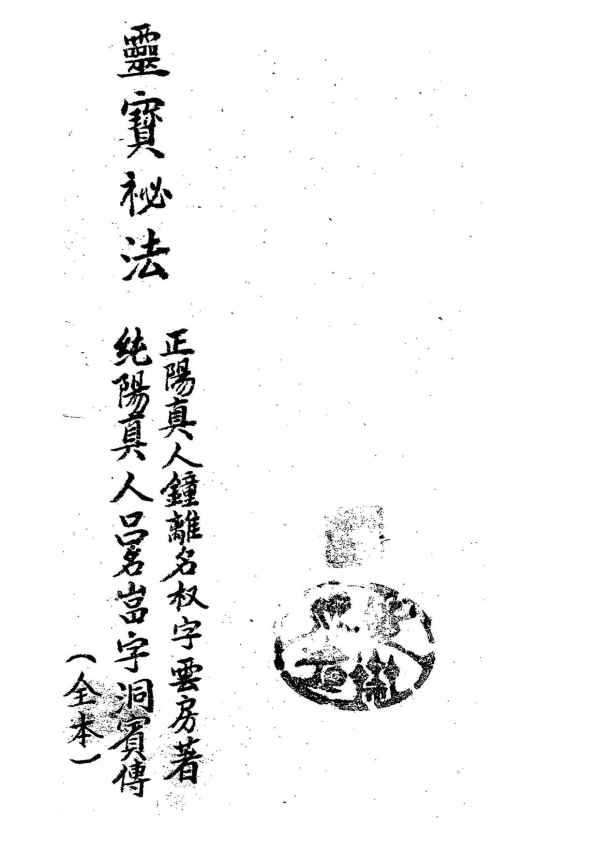 靈寶祕法
正陽真人鐘離名权字雲房著
純陽真人吕名嵓字洞賓傳
(全本)